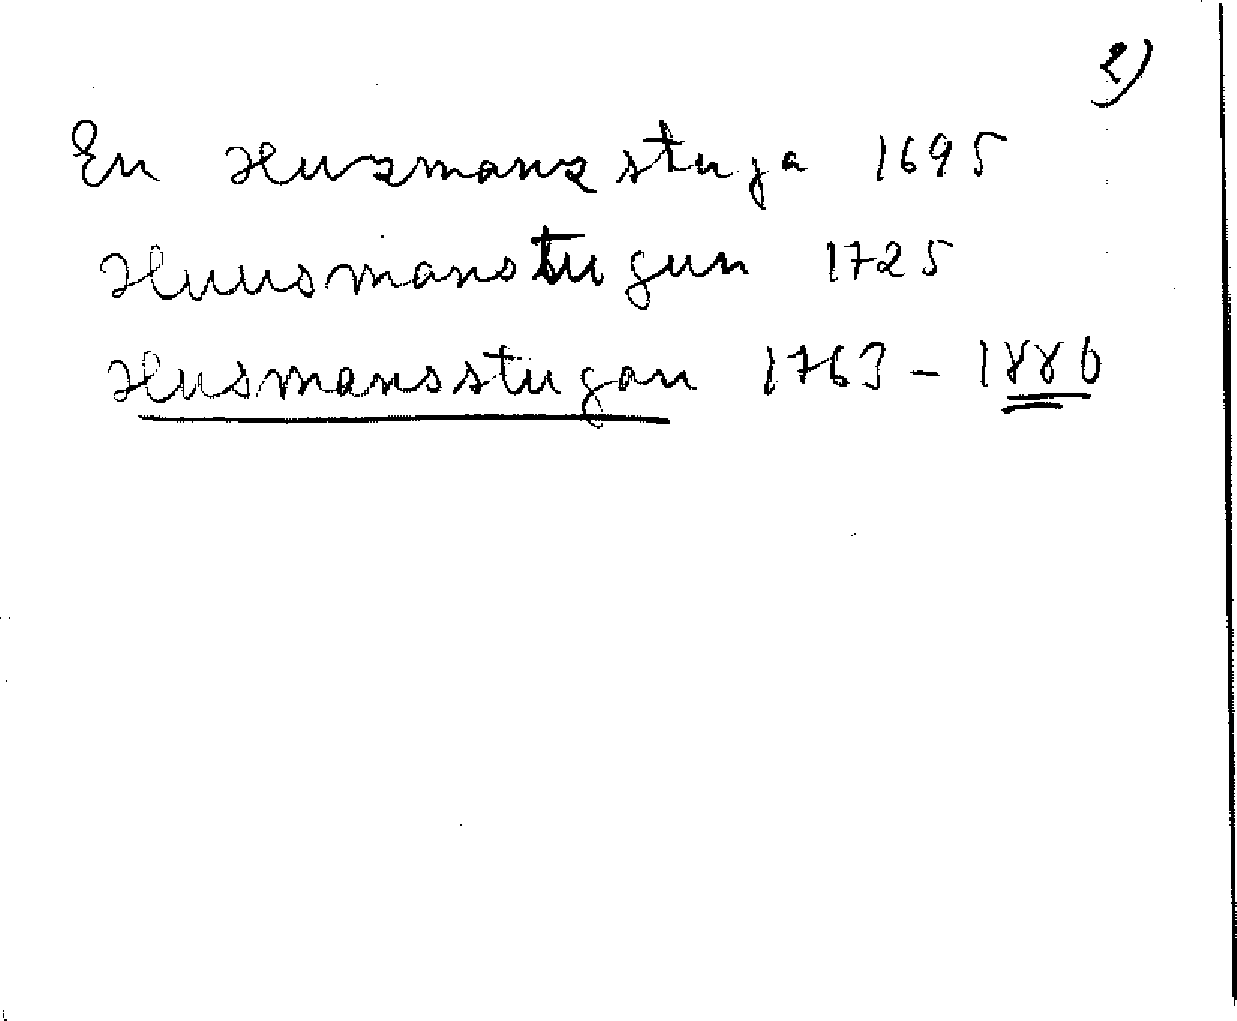 2)
En Huzmanz stuga 1695
Huusmanstugun 1725
Husmansstugan 1763 - 1886